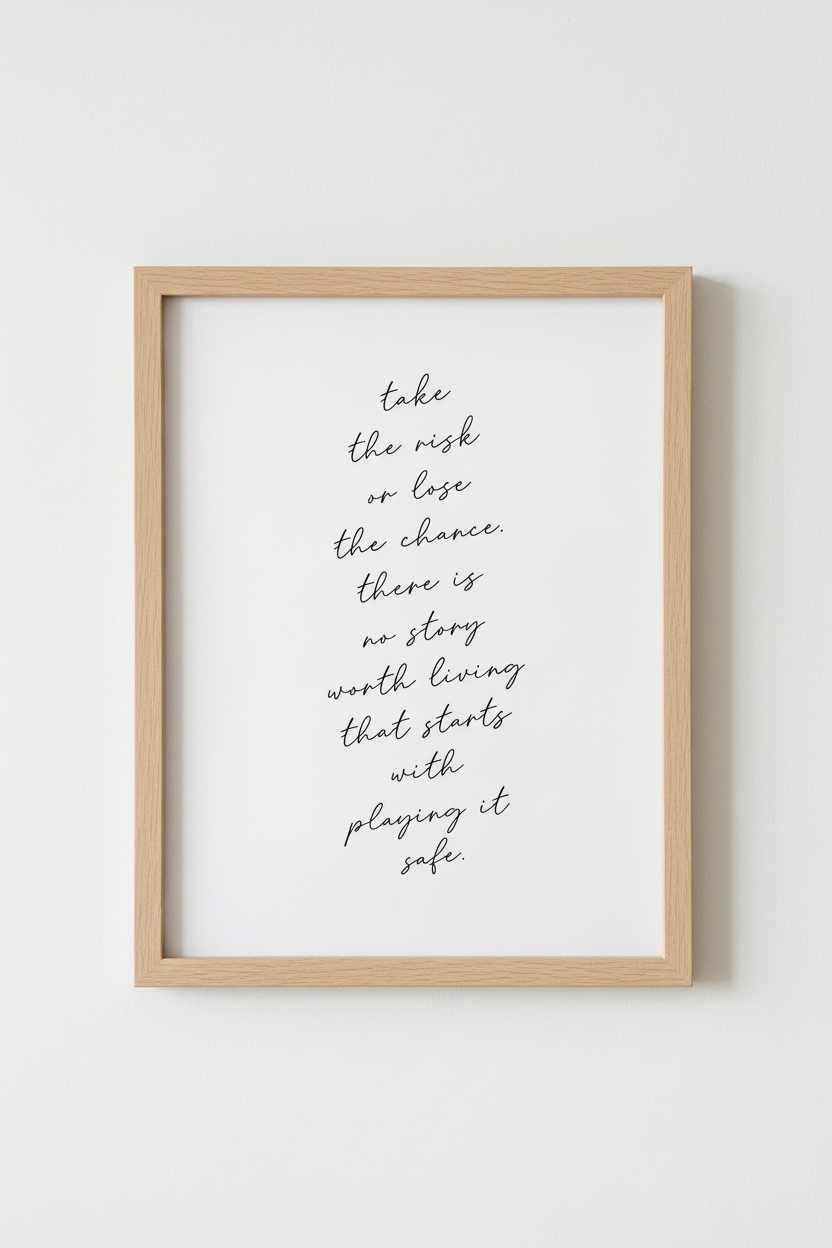 take
the risk
or lose
the chance.
there is
no story
worth living
that starts
with
playing it
safe.